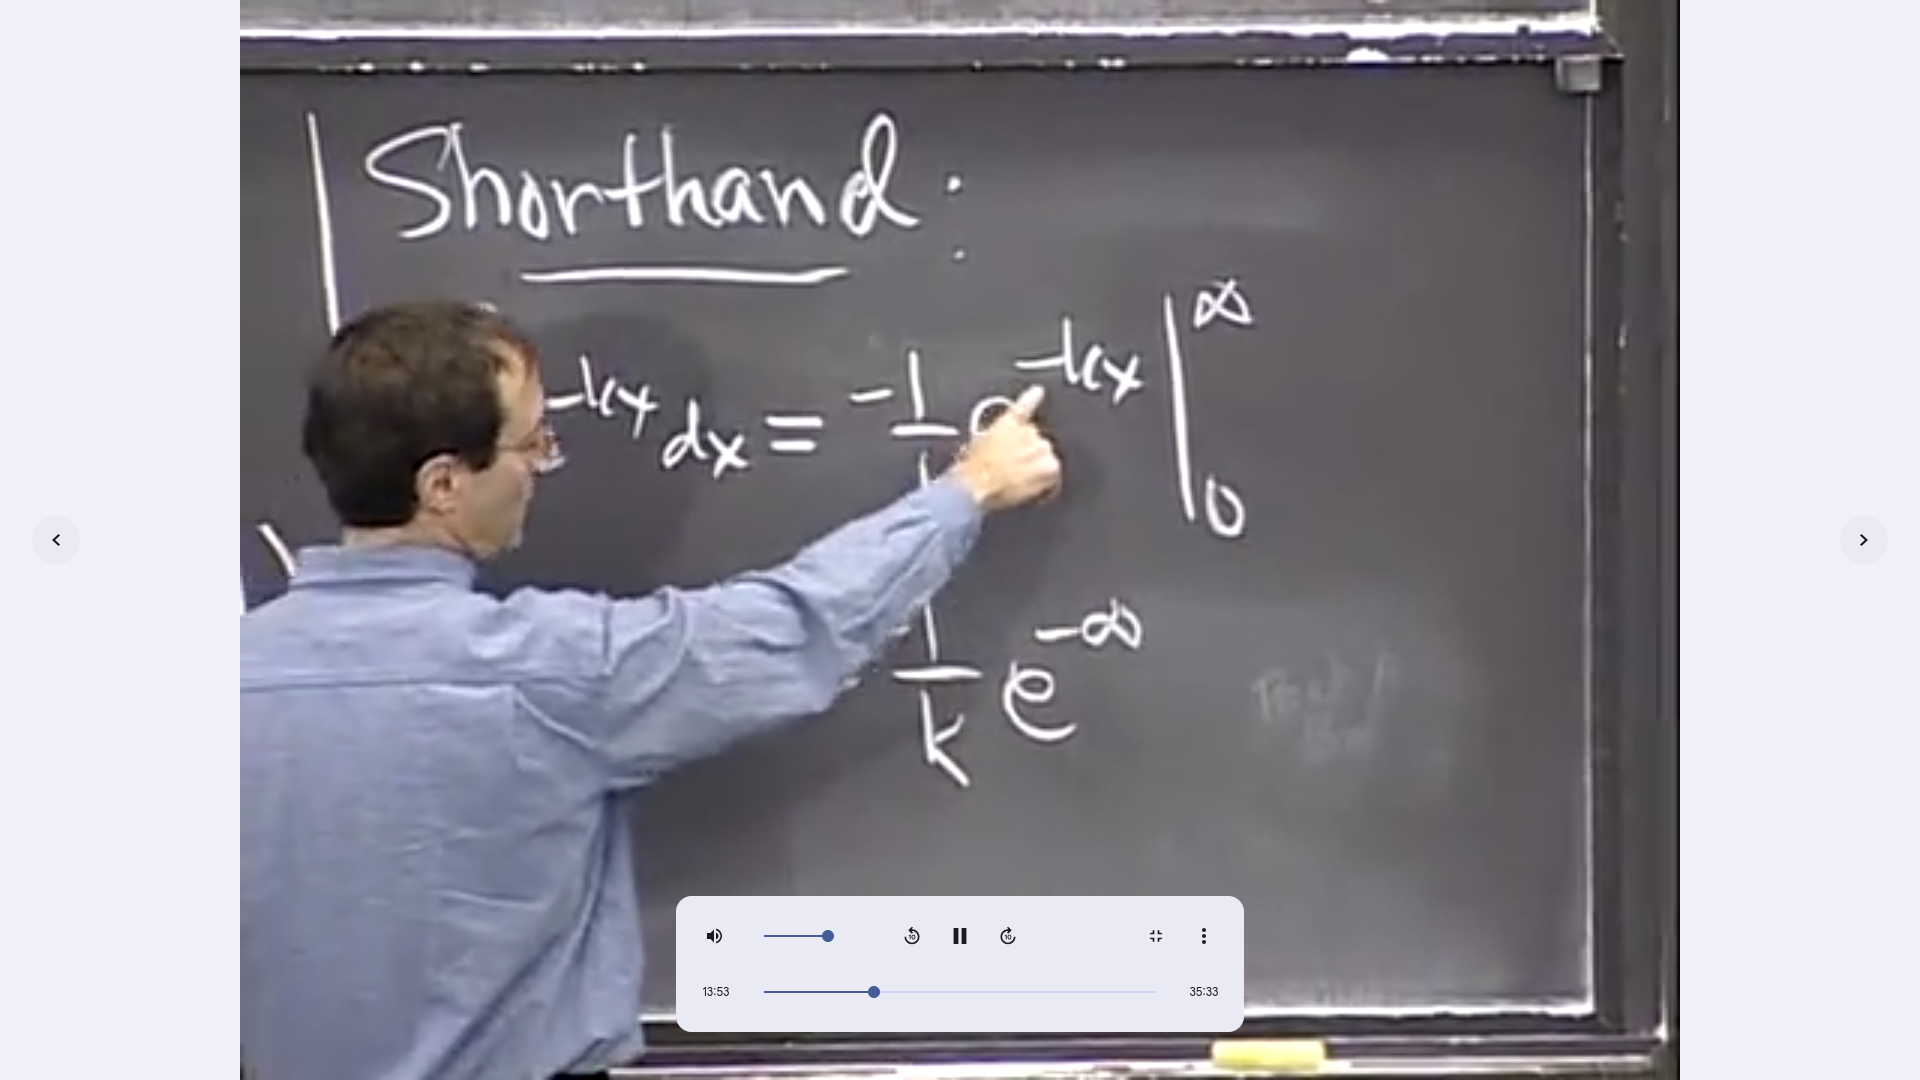 Shorthand:
-kx dx = -1/ e^-kx |_0^∞
-1/k e^-∞
10 10
13:53 35:33